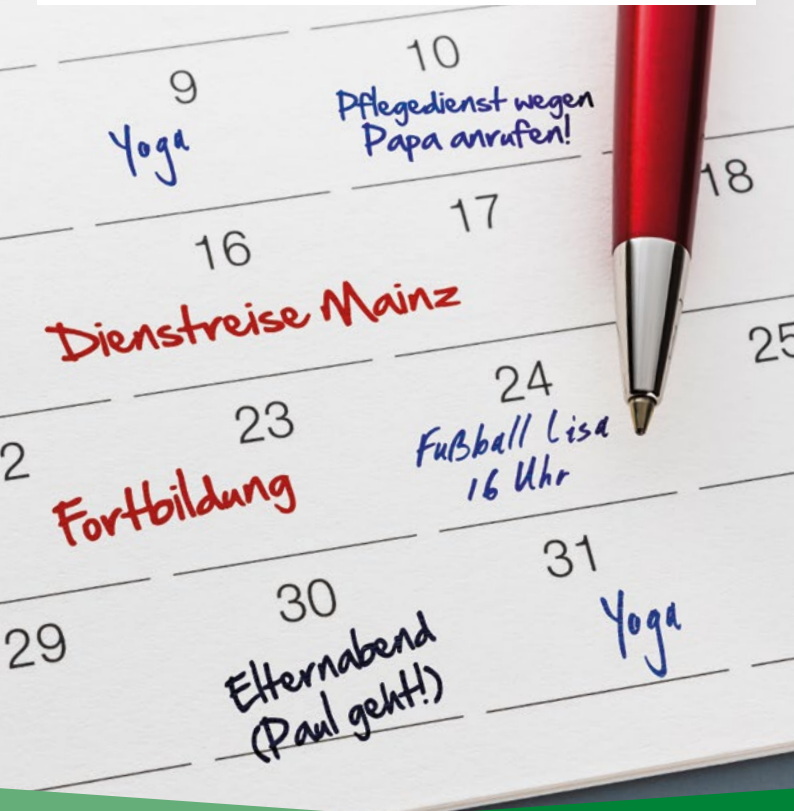 9
10
Yoga
Pflegedienst wegen
Papa anrufen!
16
17
18
Dienstreise Mainz
2
23
24
25
Fortbildung
Fußball Lisa
16 Uhr
29
30
31
Elternabend
(Paul geht!)
Yoga